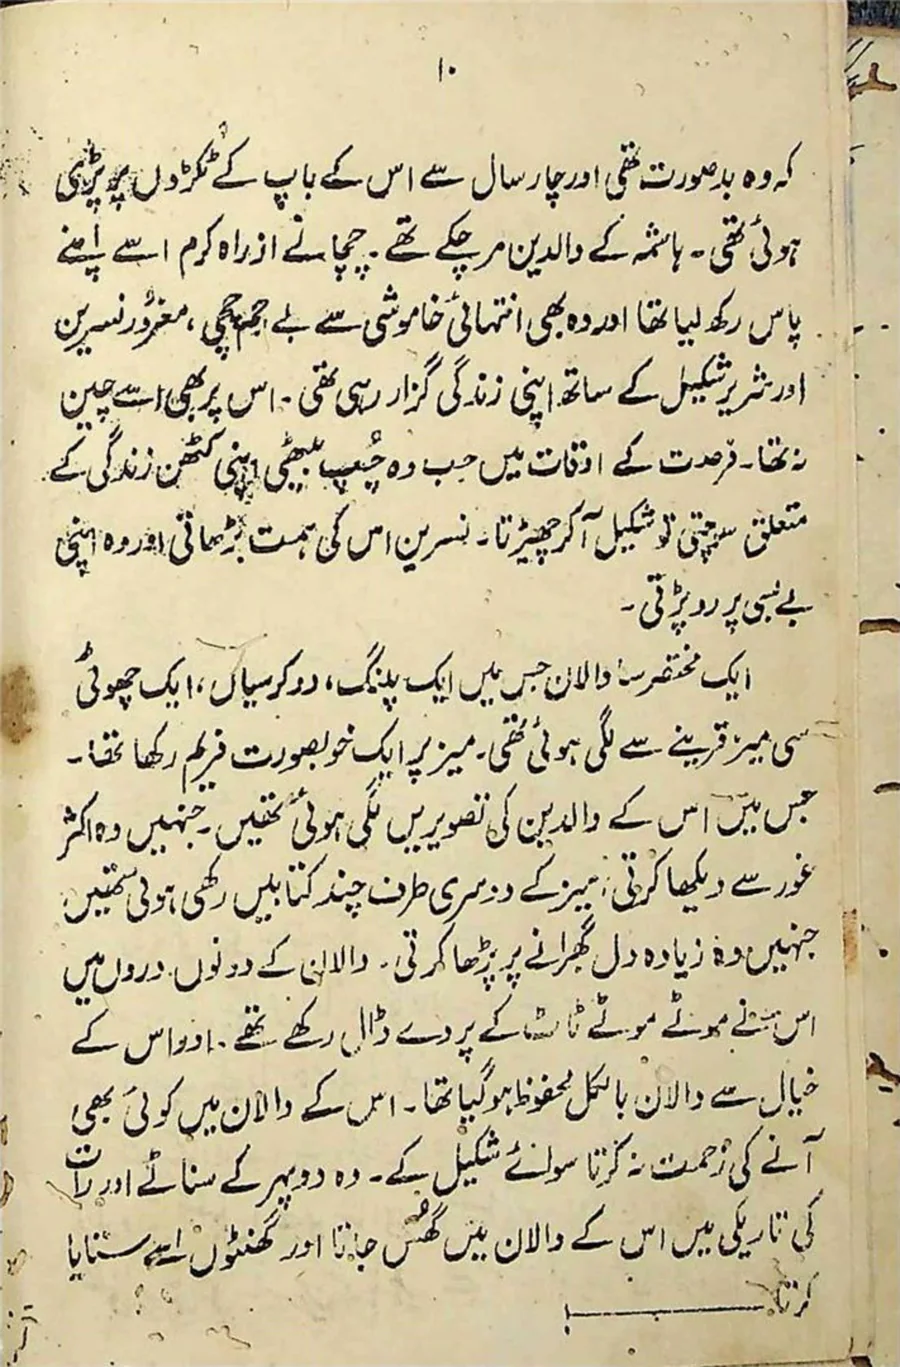 ۱۰
کہ وہ بدصورت تھی اور چار سال سے اس کے باپ کے ٹکڑوں پر پڑی
ہوئی تھی۔ ہاشمہ کے والدین مر چکے تھے۔ چچا نے از راہ کرم اسے اپنے
پاس رکھ لیا تھا اور وہ بھی انتہائی خاموشی سے بے رحم چچی، مغرور نسرین
اور شریر شکیل کے ساتھ اپنی زندگی گزار رہی تھی۔ اس پر بھی اسے چین
نہ تھا۔ فرصت کے اوقات میں جب وہ چُپ بیٹھی اپنی کٹھن زندگی کے
متعلق سوچتی تو شکیل آ کر چھیڑتا۔ نسرین اس کی ہمت بڑھاتی اور وہ اپنی
بے بسی پر رو پڑتی۔
ایک مختصر سا دالان جس میں ایک پلنگ، دو کرسیاں، ایک چھوٹی
سی میز قرینے سے لگی ہوئی تھی۔ میز پر ایک خوبصورت فریم رکھا تھا۔
جس میں اس کے والدین کی تصویریں لگی ہوئی تھیں۔ جنہیں وہ اکثر
غور سے دیکھا کرتی، میز کے دوسری طرف چند کتابیں رکھی ہوئی تھیں
جنہیں وہ زیادہ دل گھبرانے پر پڑھا کرتی۔ دالان کے دونوں دروں میں
اس نے موٹے موٹے ٹاٹ کے پردے ڈال رکھے تھے۔ اور اس کے
خیال سے دالان بالکل محفوظ ہو گیا تھا۔ اس کے دالان میں کوئی بھی
آنے کی زحمت نہ کرتا سوائے شکیل کے۔ وہ دوپہر کے سناٹے اور رات
کی تاریکی میں اس کے دالان میں گھُس جاتا اور گھنٹوں اسے ستایا
کرتا